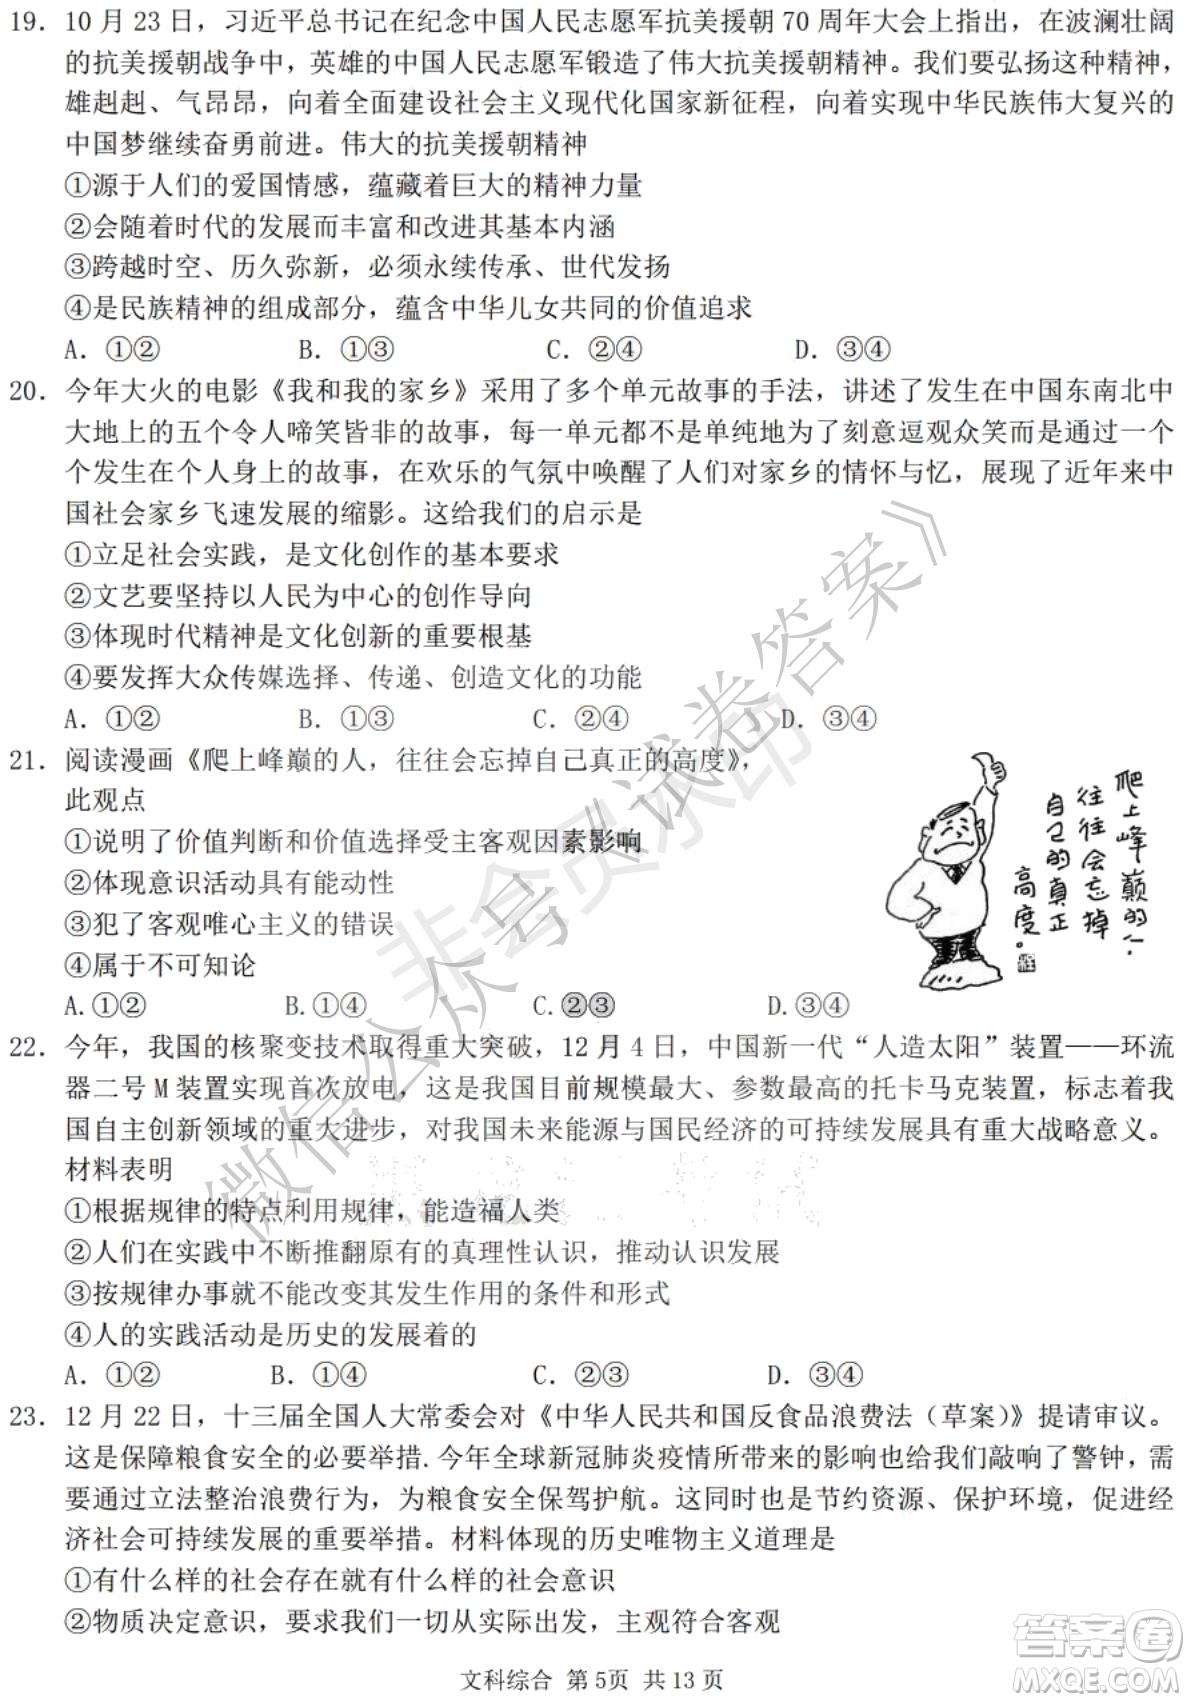 19. 10 月 23 日，习近平总书记在纪念中国人民志愿军抗美援朝 70 周年大会上指出，在波澜壮阔
的抗美援朝战争中，英雄的中国人民志愿军锻造了伟大抗美援朝精神。我们要弘扬这种精神，
雄赳赳、气昂昂，向着全面建设社会主义现代化国家新征程，向着实现中华民族伟大复兴的
中国梦继续奋勇前进。伟大的抗美援朝精神
①源于人们的爱国情感，蕴藏着巨大的精神力量
②会随着时代的发展而丰富和改进其基本内涵
③跨越时空、历久弥新，必须永续传承、世代发扬
④是民族精神的组成部分，蕴含中华儿女共同的价值追求
A. ①② B. ①③ C. ②④ D. ③④
20. 今年大火的电影《我和我的家乡》采用了多个单元故事的手法，讲述了发生在中国东南北中
大地上的五个令人啼笑皆非的故事，每一单元都不是单纯地为了刻意逗观众笑而是通过一个
个发生在个人身上的故事，在欢乐的气氛中唤醒了人们对家乡的情怀与忆，展现了近年来中
国社会家乡飞速发展的缩影。这给我们的启示是
①立足社会实践，是文化创作的基本要求
②文艺要坚持以人民为中心的创作导向
③体现时代精神是文化创新的重要根基
④要发挥大众传媒选择、传递、创造文化的功能
A. ①② B. ①③ C. ②④ D. ③④
21. 阅读漫画《爬上峰巅的人，往往会忘掉自己真正的高度》，
此观点
①说明了价值判断和价值选择受主客观因素影响
②体现意识活动具有能动性
③犯了客观唯心主义的错误
④属于不可知论
A.①② B.①④ C.②③ D.③④
爬上峰巅的人.
往往会忘掉
自己的真正
高度。
22. 今年，我国的核聚变技术取得重大突破，12 月 4 日，中国新一代“人造太阳”装置——环流
器二号 M 装置实现首次放电，这是我国目前规模最大、参数最高的托卡马克装置，标志着我
国自主创新领域的重大进步，对我国未来能源与国民经济的可持续发展具有重大战略意义。
材料表明
①根据规律的特点利用规律，能造福人类
②人们在实践中不断推翻原有的真理性认识，推动认识发展
③按规律办事就不能改变其发生作用的条件和形式
④人的实践活动是历史的发展着的
A. ①② B. ①④ C. ②③ D. ③④
23. 12 月 22 日，十三届全国人大常委会对《中华人民共和国反食品浪费法（草案）》提请审议。
这是保障粮食安全的必要举措.今年全球新冠肺炎疫情所带来的影响也给我们敲响了警钟，需
要通过立法整治浪费行为，为粮食安全保驾护航。这同时也是节约资源、保护环境，促进经
济社会可持续发展的重要举措。材料体现的历史唯物主义道理是
①有什么样的社会存在就有什么样的社会意识
②物质决定意识，要求我们一切从实际出发，主观符合客观
文科综合 第 5页 共 13 页
微信公众号《试卷答案》
非会员水印
答案卷
MXQE.COM